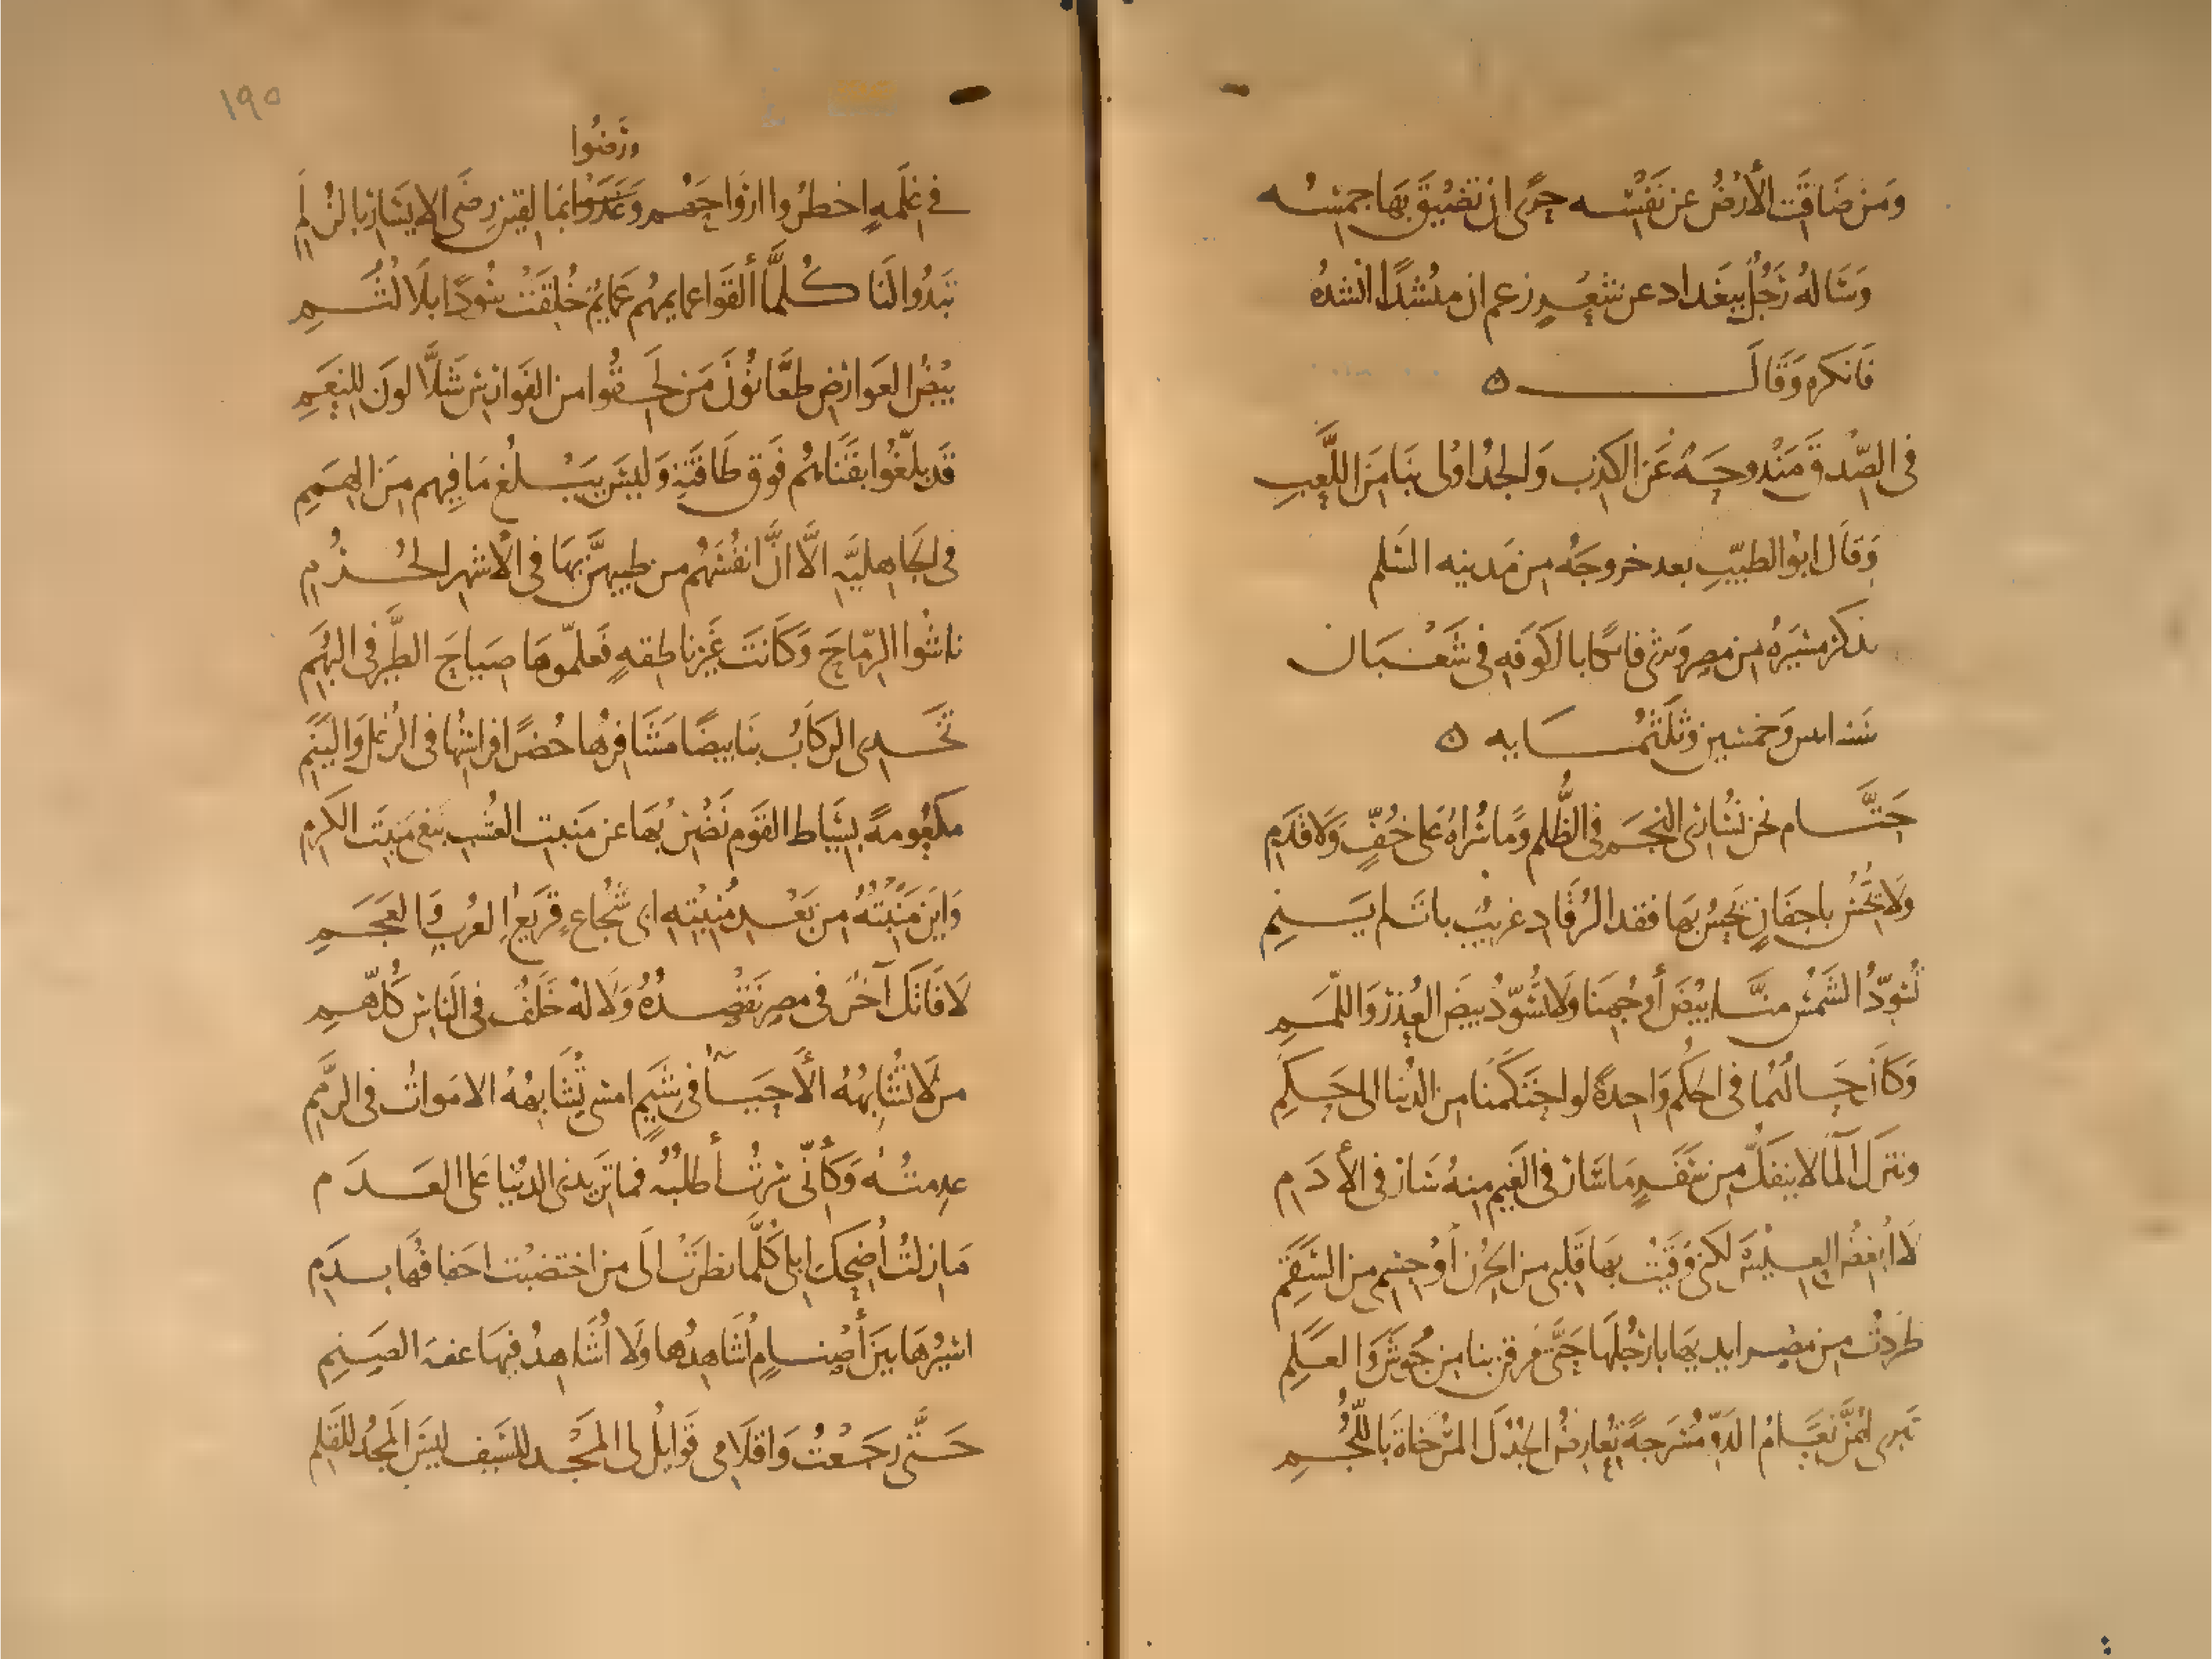 وَمَن ضَاقَت الأرضُ عن نَفسِه حِرًى ان تَضِيقَ بِهَا جِسمُه
وَسَالهُ رَجُلٌ ببغداد عن شعرٍ زعم ان منشدًا انشدهُ
فَانكره وَقَالَ ه
في الصّدق مَندوحَةٌ عَن الكذِب وَالجدُ اولى بنَا مِنَ اللَّعِبِ
وَقَال ابو الطيّبِ بعد خروجه من مَدينه السَلم
يذكر مَسيرَهُ من مصر وَيرثي فاتكا بالكوفه في شَعبَان
سَنه وَخمسين وَثلثمايه ه
حَتَّام نحن نُسَارى النجمَ في الظُّلمِ وَمَا سُراهُ على خُفٍّ وَلا قدَمِ
وَلا يُحسُ باجفَانٍ يُحِسُّ بهَا فقد الرُقَاد غريبٌ بات لم يَنمِ
تُسَوّدُ الشَمسُ منَّا بيْضَ أوجُهِنَا وَلا تُسَوّدُ بيضَ العُذرِ وَاللّمَمِ
وَكَانَ حَالهُمَا في الحكم وَاحِدةً لو احتَكَمنَا من الدُنيا الى حَكَمِ
ونترك المَا لا ينفكّ من سَفَرٍ مَا سَار في الغَيمِ منهُ سَار في الأدَمِ
لا ابغضُ العِيسَ لكني وَقَيتُ بهَا قلبى من الحُزن أوْ جسمى من السَقَمِ
طَردتُ من مصر ايديهَا بارجُلهَا حَتَّى مَرقن بنا من جَوشَ وَالعَلمِ
تَبرى لهُنَّ نَعَامُ الدَوّ مُسرَجةً تُعارضُ الجُدلَ المُرخَاةَ باللُّجُمِ
١٩٥
ورَضُوا
في غِلمَهٍ اخطرُوا ارْوَاحَهُم وَغَدَوْا بمَا لقين رِضَى الايسَارِ بالزُلَمِ
تَبدُوا لَنَا كُلمَّا ألقَوا عمايمهُم عَمايمٌ خُلِقَتْ سُودًا بلَا لُثُمِ
بيْضُ العَوارضِ طعَّانُونَ مَن لحِقُوا من الفَوارِس شلَّالونَ للنِعَمِ
قَد بلّغُوا بقَنَاهُم فَوق طَاقَتِهِ وَليسَ يَبلُغ مَا فِيهم مِنَ الهِمَمِ
في الجَاهليَّهِ الَّا انَّ انفُسَهُم من طيبهنَّ بهَا في الاشهر الحُرُمِ
ناشُوا الرّمَاحَ وَكَانَت غَيرَ ناطقهٍ فَعلمّوهَا صِيَاحَ الطَّيرِ في البُهَمِ
تَخدى الركَابُ بنَا بيضًا مَشَافرُها خُضرًا فراسنُهَا في الرُغل وَاليَنَمِ
مكعُومةً بسيَاط القَوم نَضْربُهَا عن مَنبت العُشبِ نبغى مَنبتَ الكَرمِ
وَاينَ مَنبتُهُ من بَعْدِ مَنبتِهِ ابى شُجَاعٍ قَرِيعِ العُربِ وَالعَجَمِ
لَا فَاتكٌ آخرٌ في مصر نَقصدُهُ وَلَا لهُ خَلَفٌ في النَاس كُلّهِمِ
من لَا تُشَابِهُهُ الأحيَاءُ في شِيَمٍ امسَى تُشَابِهُهُ الامَواتُ في الرِّمَمِ
عدِمتُهُ وَكَأنّى سِرتُ أطلبُهُ فما تَزيدُنى الدنيا عَلى العَدَمِ
مَا زلتُ أُضحِكُ ابلى كُلَّمَا نظَرَتْ الَى من اختَضبَت اخفافُهَا بدَمِ
اسيرُهَا بَينَ أصْنامٍ أُشَاهِدُها وَلَا أُشَاهِدُ فيهَا عفهَ الصَنمِ
حَتَّى رجَعْتُ وَاقلَامى قَوَايلُ لى المَجْد للسَيف ليسَ المَجدُ للقَلمِ